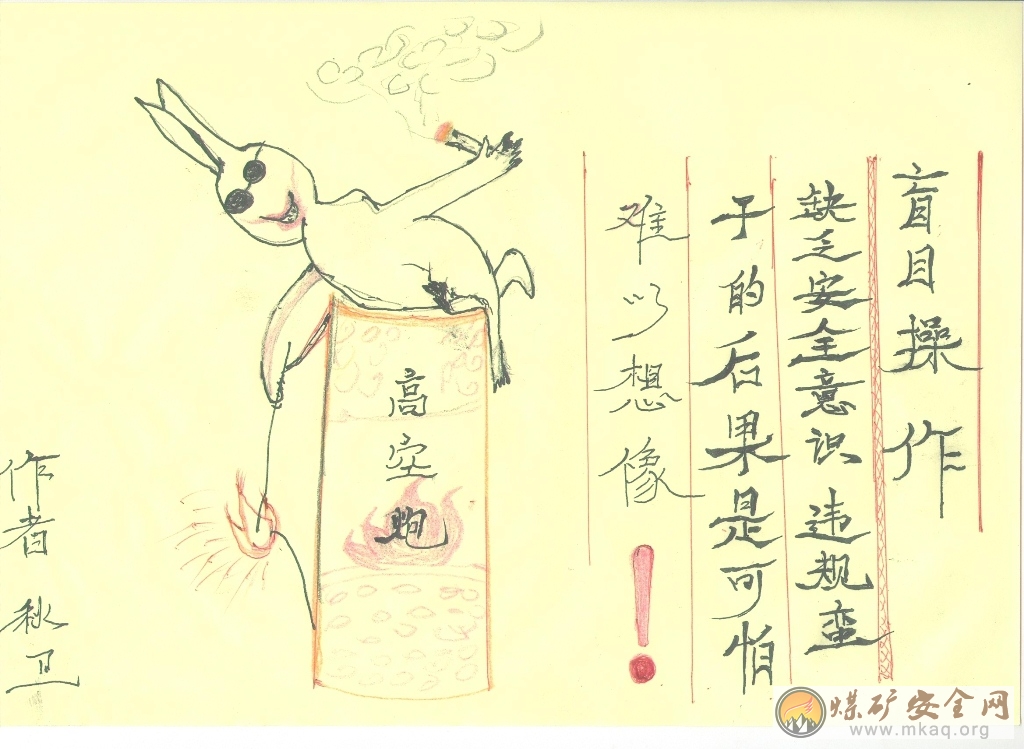 盲目操作
缺乏安全意识违规蛮
干的后果是可怕
难以想像！
高空炮
作者 秋卫
煤矿安全网
www.mkaq.org